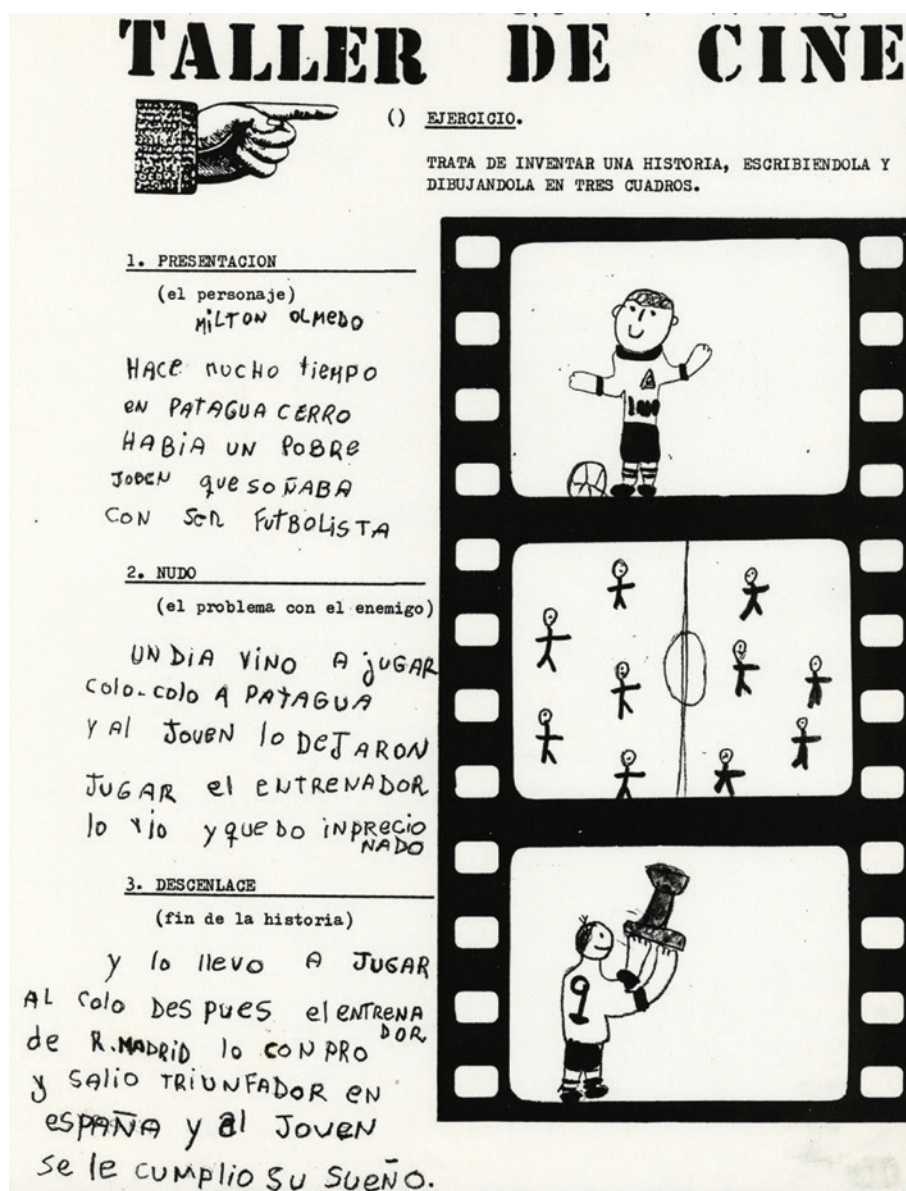 TALLER DE CINE
() EJERCICIO.
TRATA DE INVENTAR UNA HISTORIA, ESCRIBIENDOLA Y
DIBUJANDOLA EN TRES CUADROS.
1. PRESENTACION
(el personaje)
MiLTON OLMEDO
HACE MUCHO tiEMPO
eN PATAGUA CERRO
HABiA UN POBRe
JOBEN que SOÑABA
CON SER FUtBOLiSTA
2. NUDO
(el problema con el enemigo)
UN DiA ViNO A jUGAR
COLO-COLO A PATAGUA
Y Al JOVEN lo DeJARON
JUGAR el ENTRENADOR
lo Vio y queDo iNPRecio
NADO
3. DESCENLACE
(fin de la historia)
y lo llevo A JUGAR
AL Colo DesPues el eNTRENA
DOR
de R.MADRiD lo CONPRO
y SALIO TRiUNFADOR eN
esPAÑA y al JOVEN
se le CUMPLIO SU SUEÑO.
9